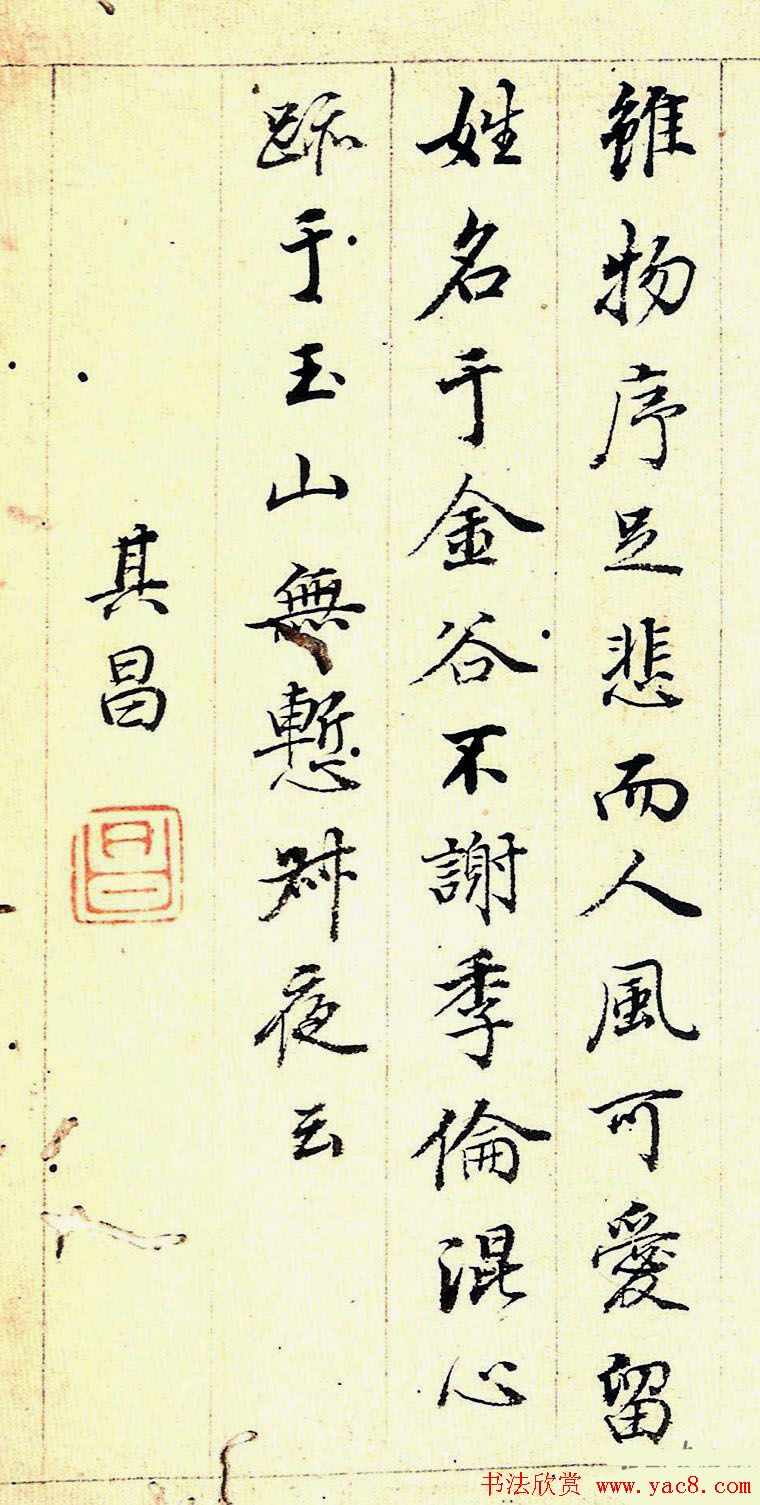 雖物序足悲而人風可愛留
姓名于金谷不謝季倫混心
跡于玉山無慙叔夜云
其昌
昌
书法欣赏 www.yac8.com